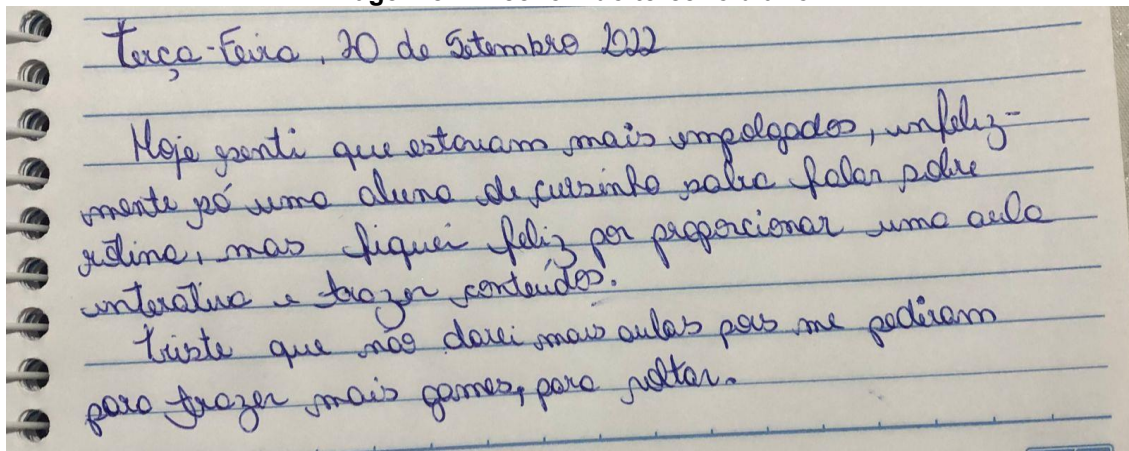 Terça-Feira, 20 de Setembro 2022
Hoje senti que estavam mais empolgados, infeliz-
mente só uma aluna de cursinho sabia falar sobre
rotina, mas fiquei feliz por proporcionar uma aula
interativa e trazer conteúdos.
Triste que não darei mais aulas pois me pediram
para trazer mais games, para voltar.